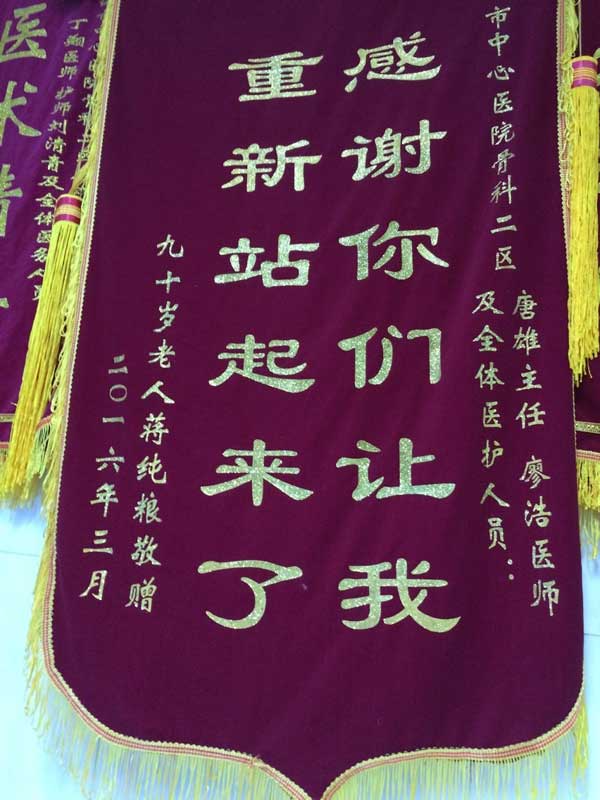 市中心医院骨科二区
唐雄主任 廖浩医师
及全体医护人员：
感谢你们让我
重新站起来了
九十岁老人蒋纯粮敬赠
二〇一六年三月
丁翔医师 护师刘清青及全体医务人员
医术精